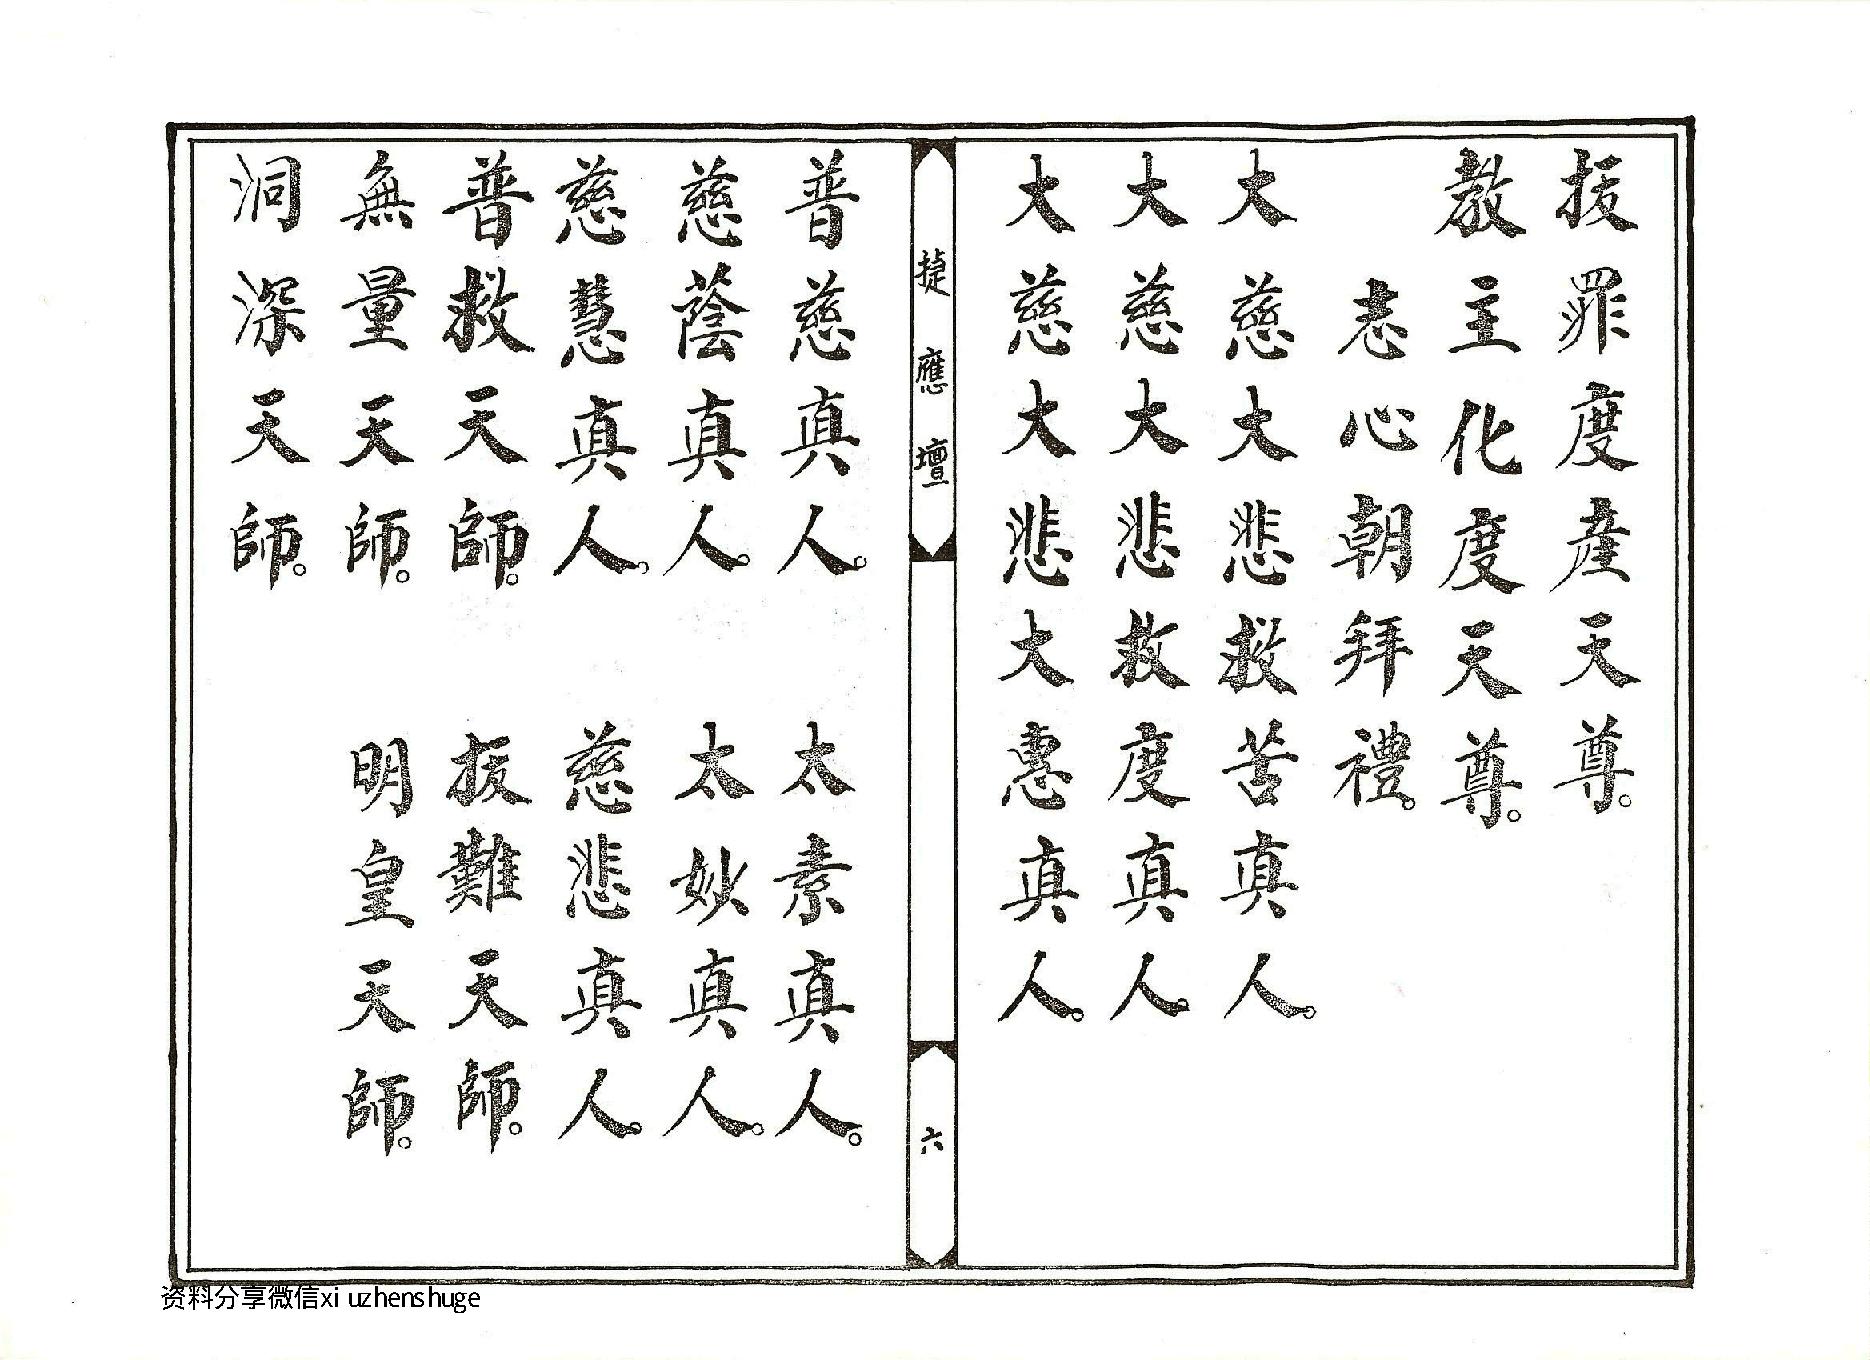 拔罪度產天尊。
教主化度天尊。
志心朝拜禮。
大慈大悲救苦真人。
大慈大悲救度真人。
大慈大悲大惠真人。
捷應壇
六
普慈真人。 太素真人。
慈蔭真人。 太妙真人。
慈慧真人。 慈悲真人。
普救天師。 拔難天師。
無量天師。 明皇天師。
洞深天師。
资料分享微信xiuzhenshuge